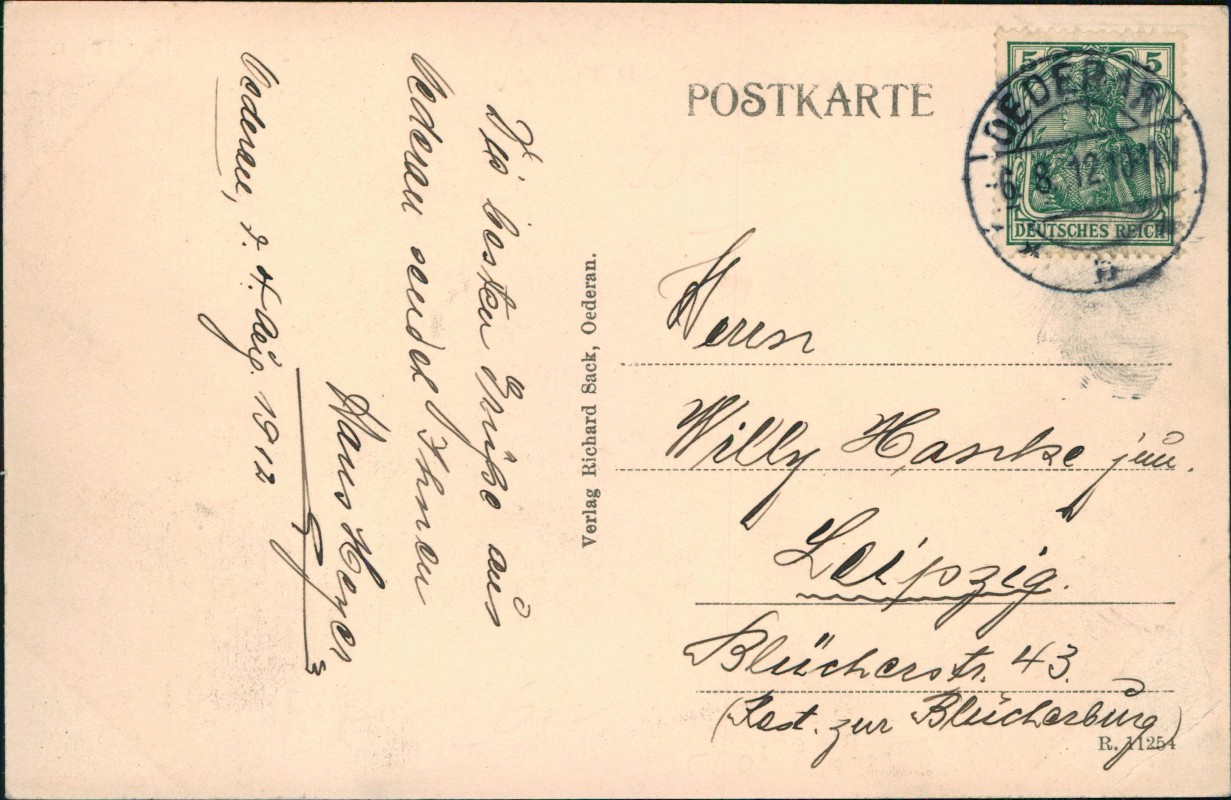 Oederan, d. 4. Aug. 1912
Die besten Grüße aus
Oederan sendet Ihnen
Hans
Verlag Richard Sack, Oederan.
POSTKARTE
5 5
DEUTSCHES REICH
OEDERAN
6.8.12.10-11
* b
Herrn
Willy jun.
Leipzig.
Blücherstr. 43.
(Rest. zur Blücherburg)
R. 11254